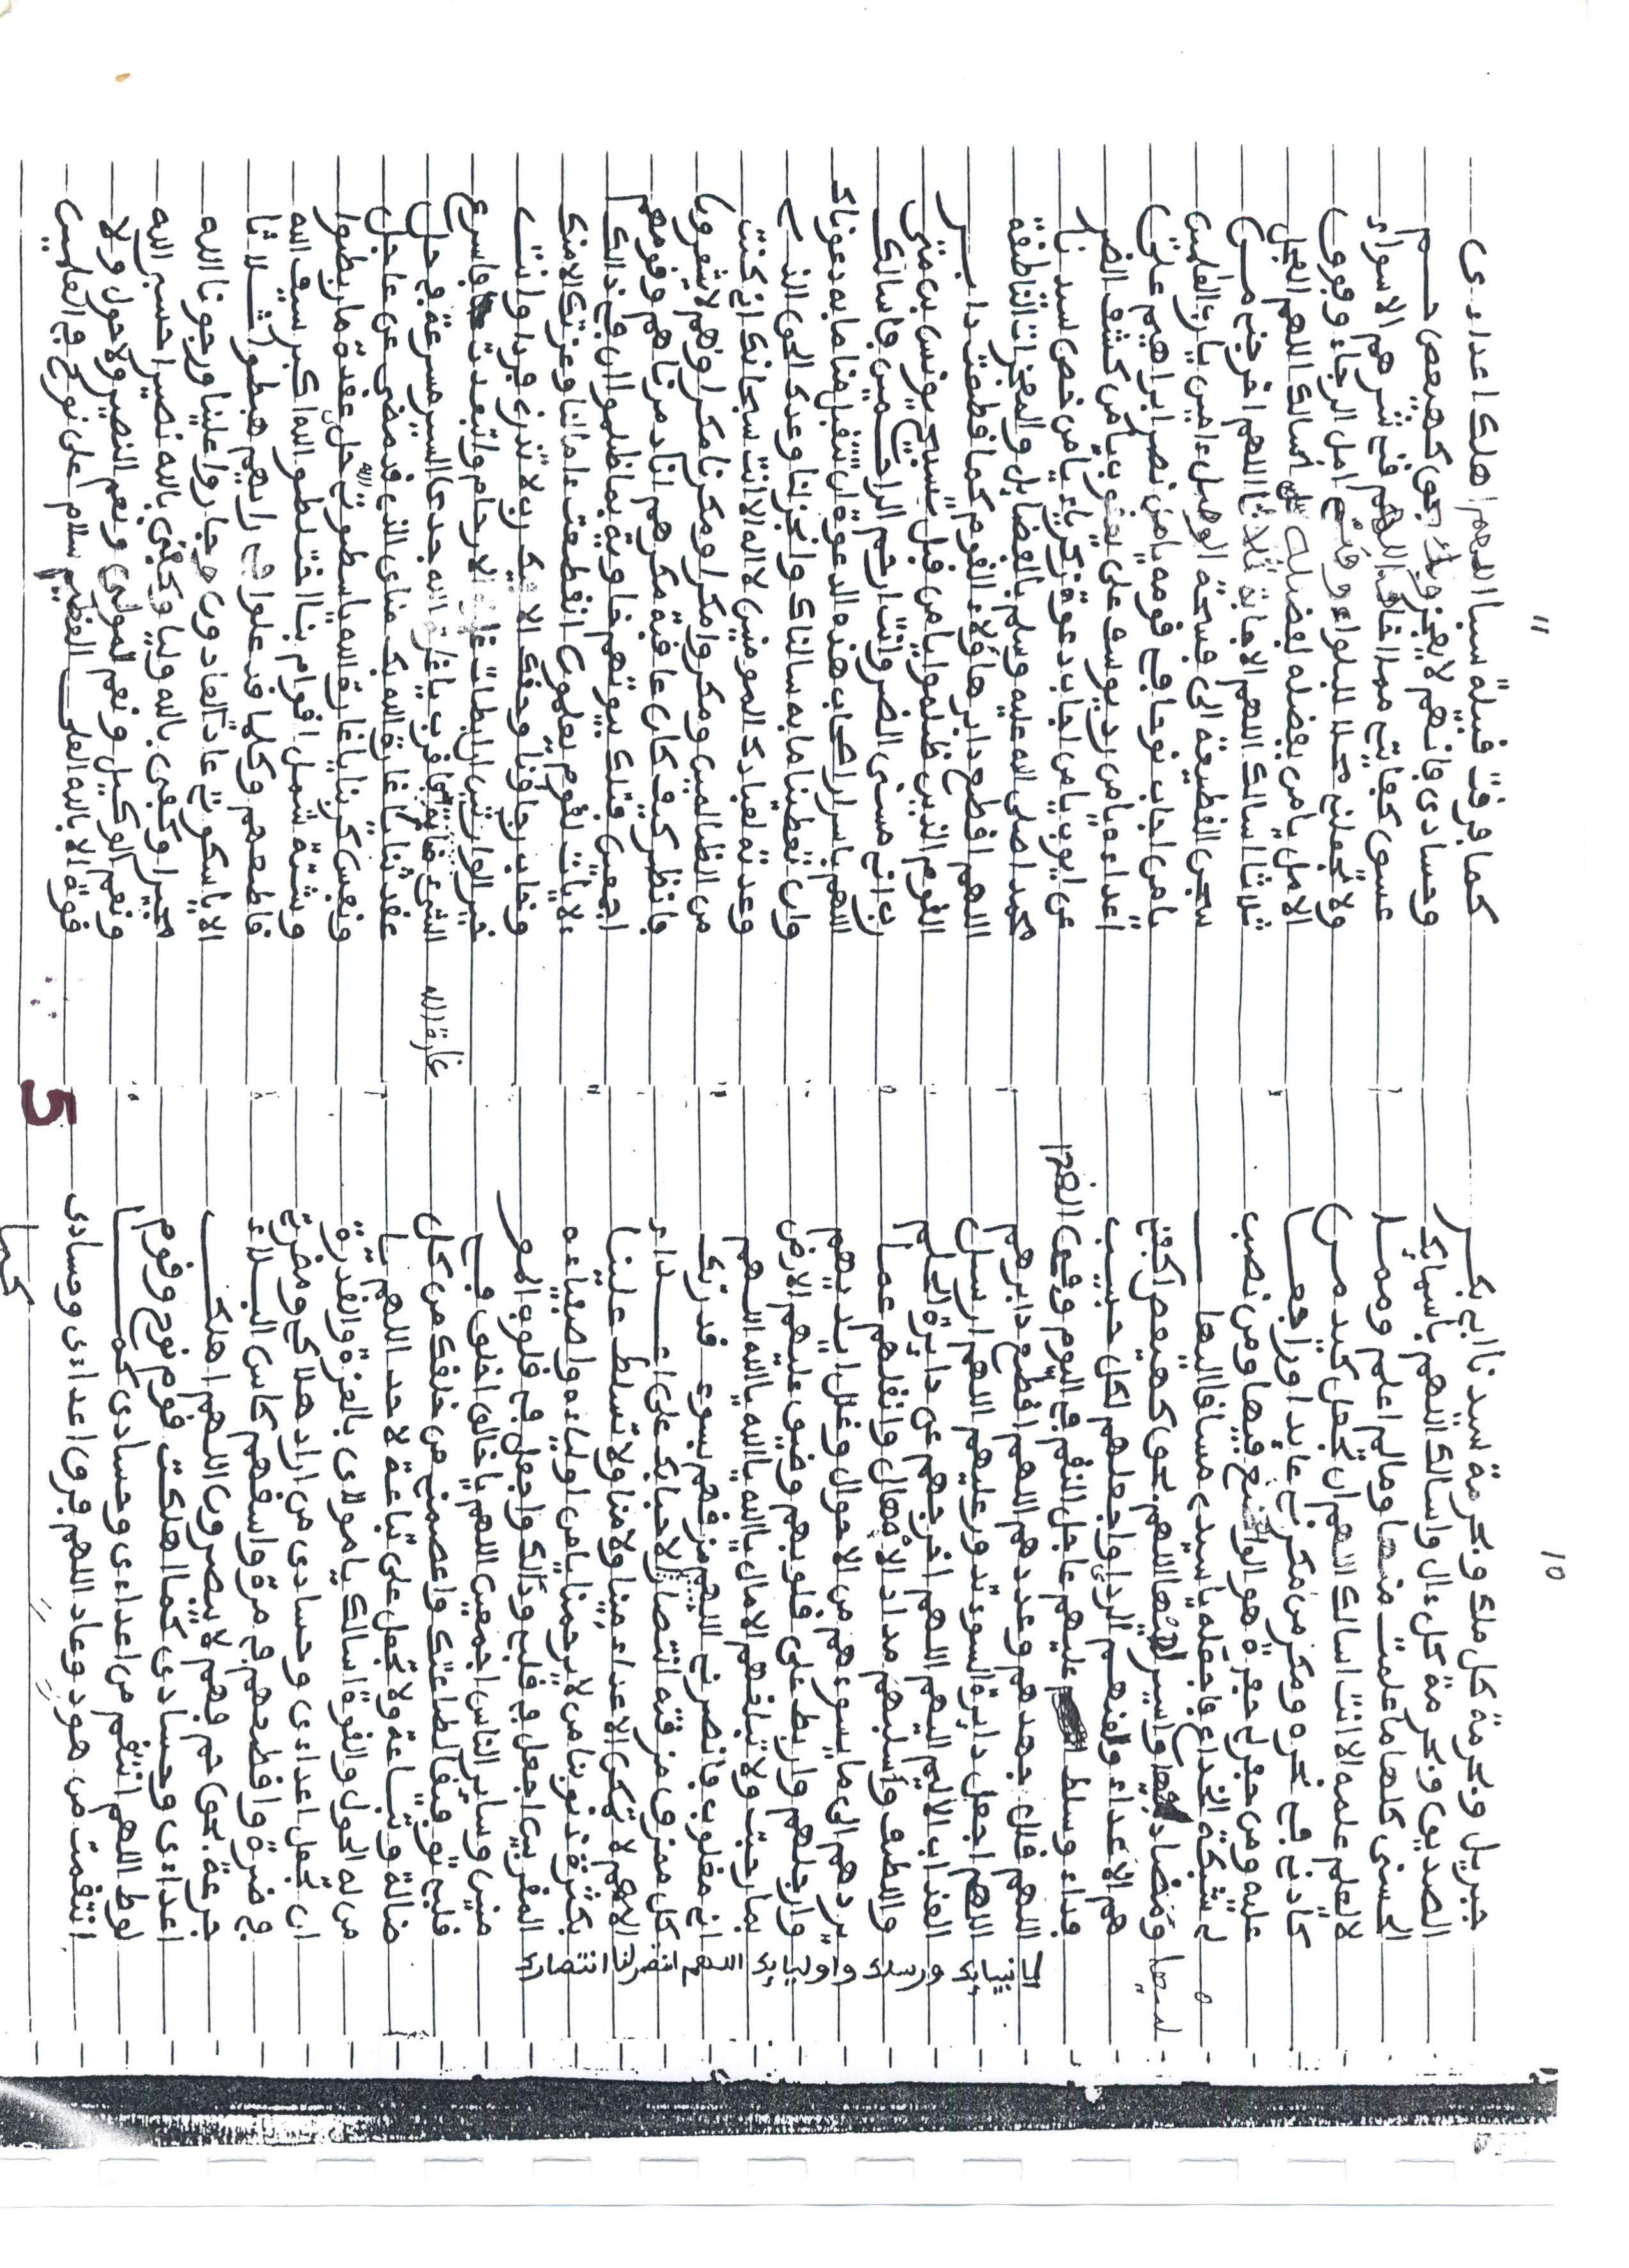 ١٠
جبريل وبحرمة كل ملك وبحرمة سيدنا ابي بكر
الصديق وبحرمة كل ءال واسالك اللهم باسمايك
الحسنى كلها ما علمت منها وما لم اعلم ومما
لا يعلم علمه الا انت اسالك اللهم ان تجعل كيد من
كادني في نحره ومكر من مكر بي عايدا وراجعا
عليه ومن حفر لي حفرة هو الواقع فيها ومن نصب
لي شبكة الخداع فاجعله يا سيدي مساقا اليها
ومصادا فيها واسيرا لديها اللهم بحق كهيعص اكفنا
هم الاعداء ولقهم الردا واجعلهم لكل حبيب
فداء وسلط عليهم عاجل النقم في اليوم وفي الغد
اللهم فلل حدهم وعددهم اللهم اقطع دابرهم
اللهم اجعل دايرة السوء تدور عليهم اللهم ارسل
العذاب الاليم اليهم اللهم اخرجهم عن دايرة الحلم
واللطف واسلبهم مداد الامهال واثقلهم عما
يردهم الى ما يسوءهم من الاحوال وغلل ايديهم
وارجلهم واربط على قلوبهم وضيق عليهم الارض
بما رحبت ولا تبلغهم الامال يا الله يا الله يا الله اللهم
اني مغلوب فانصرني اللهم مزقهم بسوء قدرتك
كل ممزق مزقته انتصارا لاحبابك على اعداء
اللهم لا تمكن الاعداء منا ولا فينا ولا تسلط علينا
بكثرة ذنوبنا من لا يرحمنا يا من اولياءه واصفياءه
المقربين اجعل في قلبي ودا لك واجعل في قلوب المو
منين وساير الناس اجمعين اللهم يا خالق اخلق في
قلبي توفيقا لطاعتك واعصمني من خلقك من كل
ضالة وتباعة ولا تجعل علي تباعة لاحد اللهم يا
من له الحول والقوة اسالك يا مولاي بالعزة والقدرة
ان تجعل اعداءي وحسادي من اراد هلاكي ومضرتي
في ضرة وافضحهم في مرة واسقهم كاس البلاء
جرعة بحق حم فهم لا ينصرون اللهم اهلك
اعداءي وحسادي كما اهلكت قوم نوح وقوم
لوط اللهم انتقم من اعداءي وحسادي كما
انتقمت من هود وعاد اللهم فرق اعداءي وحسادي
كما
انبياءك ورسلك واولياءك اللهم انتصر لنا انتصارك
١١
كما فرقت قبيلة سبا اللهم اهلك اعداءي
وحسادي فانهم لا يعجزونك بحق كهيعص حم
عسق كفايتي مما اخاف اللهم قني شرهم الاسواء
ولا تجعلني محلا للبلواء وهب لي امل الرجاء وفوق
الامل يا من بفضله لفضله نسالك اللهم العجل
ثلاثا اسالك اللهم الاجابة ثلاثا اللهم اخرجني من
سجن القطيعة الى فسحة الوصل ءامين يا رب العلمين
يا من اجاب نوحا في قومه يا من نصر ابراهيم على
اعداءه يا من رد يوسف على يعقوب يا من كشف الضر
عن ايوب يا من اجاب دعوة زكرياء يا من خص سيدنا
محمدا صلى الله عليه وسلم بالفضايل والمعجزات الناطقة
اللهم اقطع دابر هاؤلاء القوم كما قطعت دابر
القوم الذين ظلموا يا من قبل تسبيح يونس بن متى
رب اني مسني الضر وانت ارحم الراحمين فاسالك
اللهم باسرار اصحاب هذه الدعوة ان تتقبل منا ما به دعوناك
وان تعطينا ما به سالناك وانجز لنا وعدك الحق الذي
وعدته لعبادك المومنين لا اله الا انت سبحانك اني كنت
من الظالمين ومكروا مكرا ومكرنا مكرا وهم لا يشعرون
فانظر كيف كان عاقبة مكرهم انا دمرناهم وقومهم
اجمعين فتلك بيوتهم خاوية بما ظلموا ان في ذالك
ءلاية لقوم يعلمون انقطعت ءامالنا وعزتك الا منك
وخاب رجاؤنا وحقك الا فيك رب لا تذرني فردا وانت
خير الوارثين ان ابطات غارة الارحام وابتعدت فاسرع
الشيء منا غارة الله جدي السير مسرعة في حل
عقدتنا يا غارة الله بك مناي الذي قد مضى عن عاجل
ونفس كربنا يا غارة الله يا سطوة الله حل عقدة ما ربطوا
وشتتي شمل اقوام بنا اختلطوا الله اكبر سيف الله
قاطعهم وكلما قد علوا في رايهم هبطوا ثلاثا
الا يا سكوتي عادت العادون جاروا علينا ورجونا الله
مجيرا وكفى بالله وليا وكفى بالله نصيرا حسبي الله
ونعم الوكيل ونعم المولى ونعم النصير ولا حول ولا
قوة الا بالله العلي العظيم سلام على نوح في العلمين
غارة الله
5